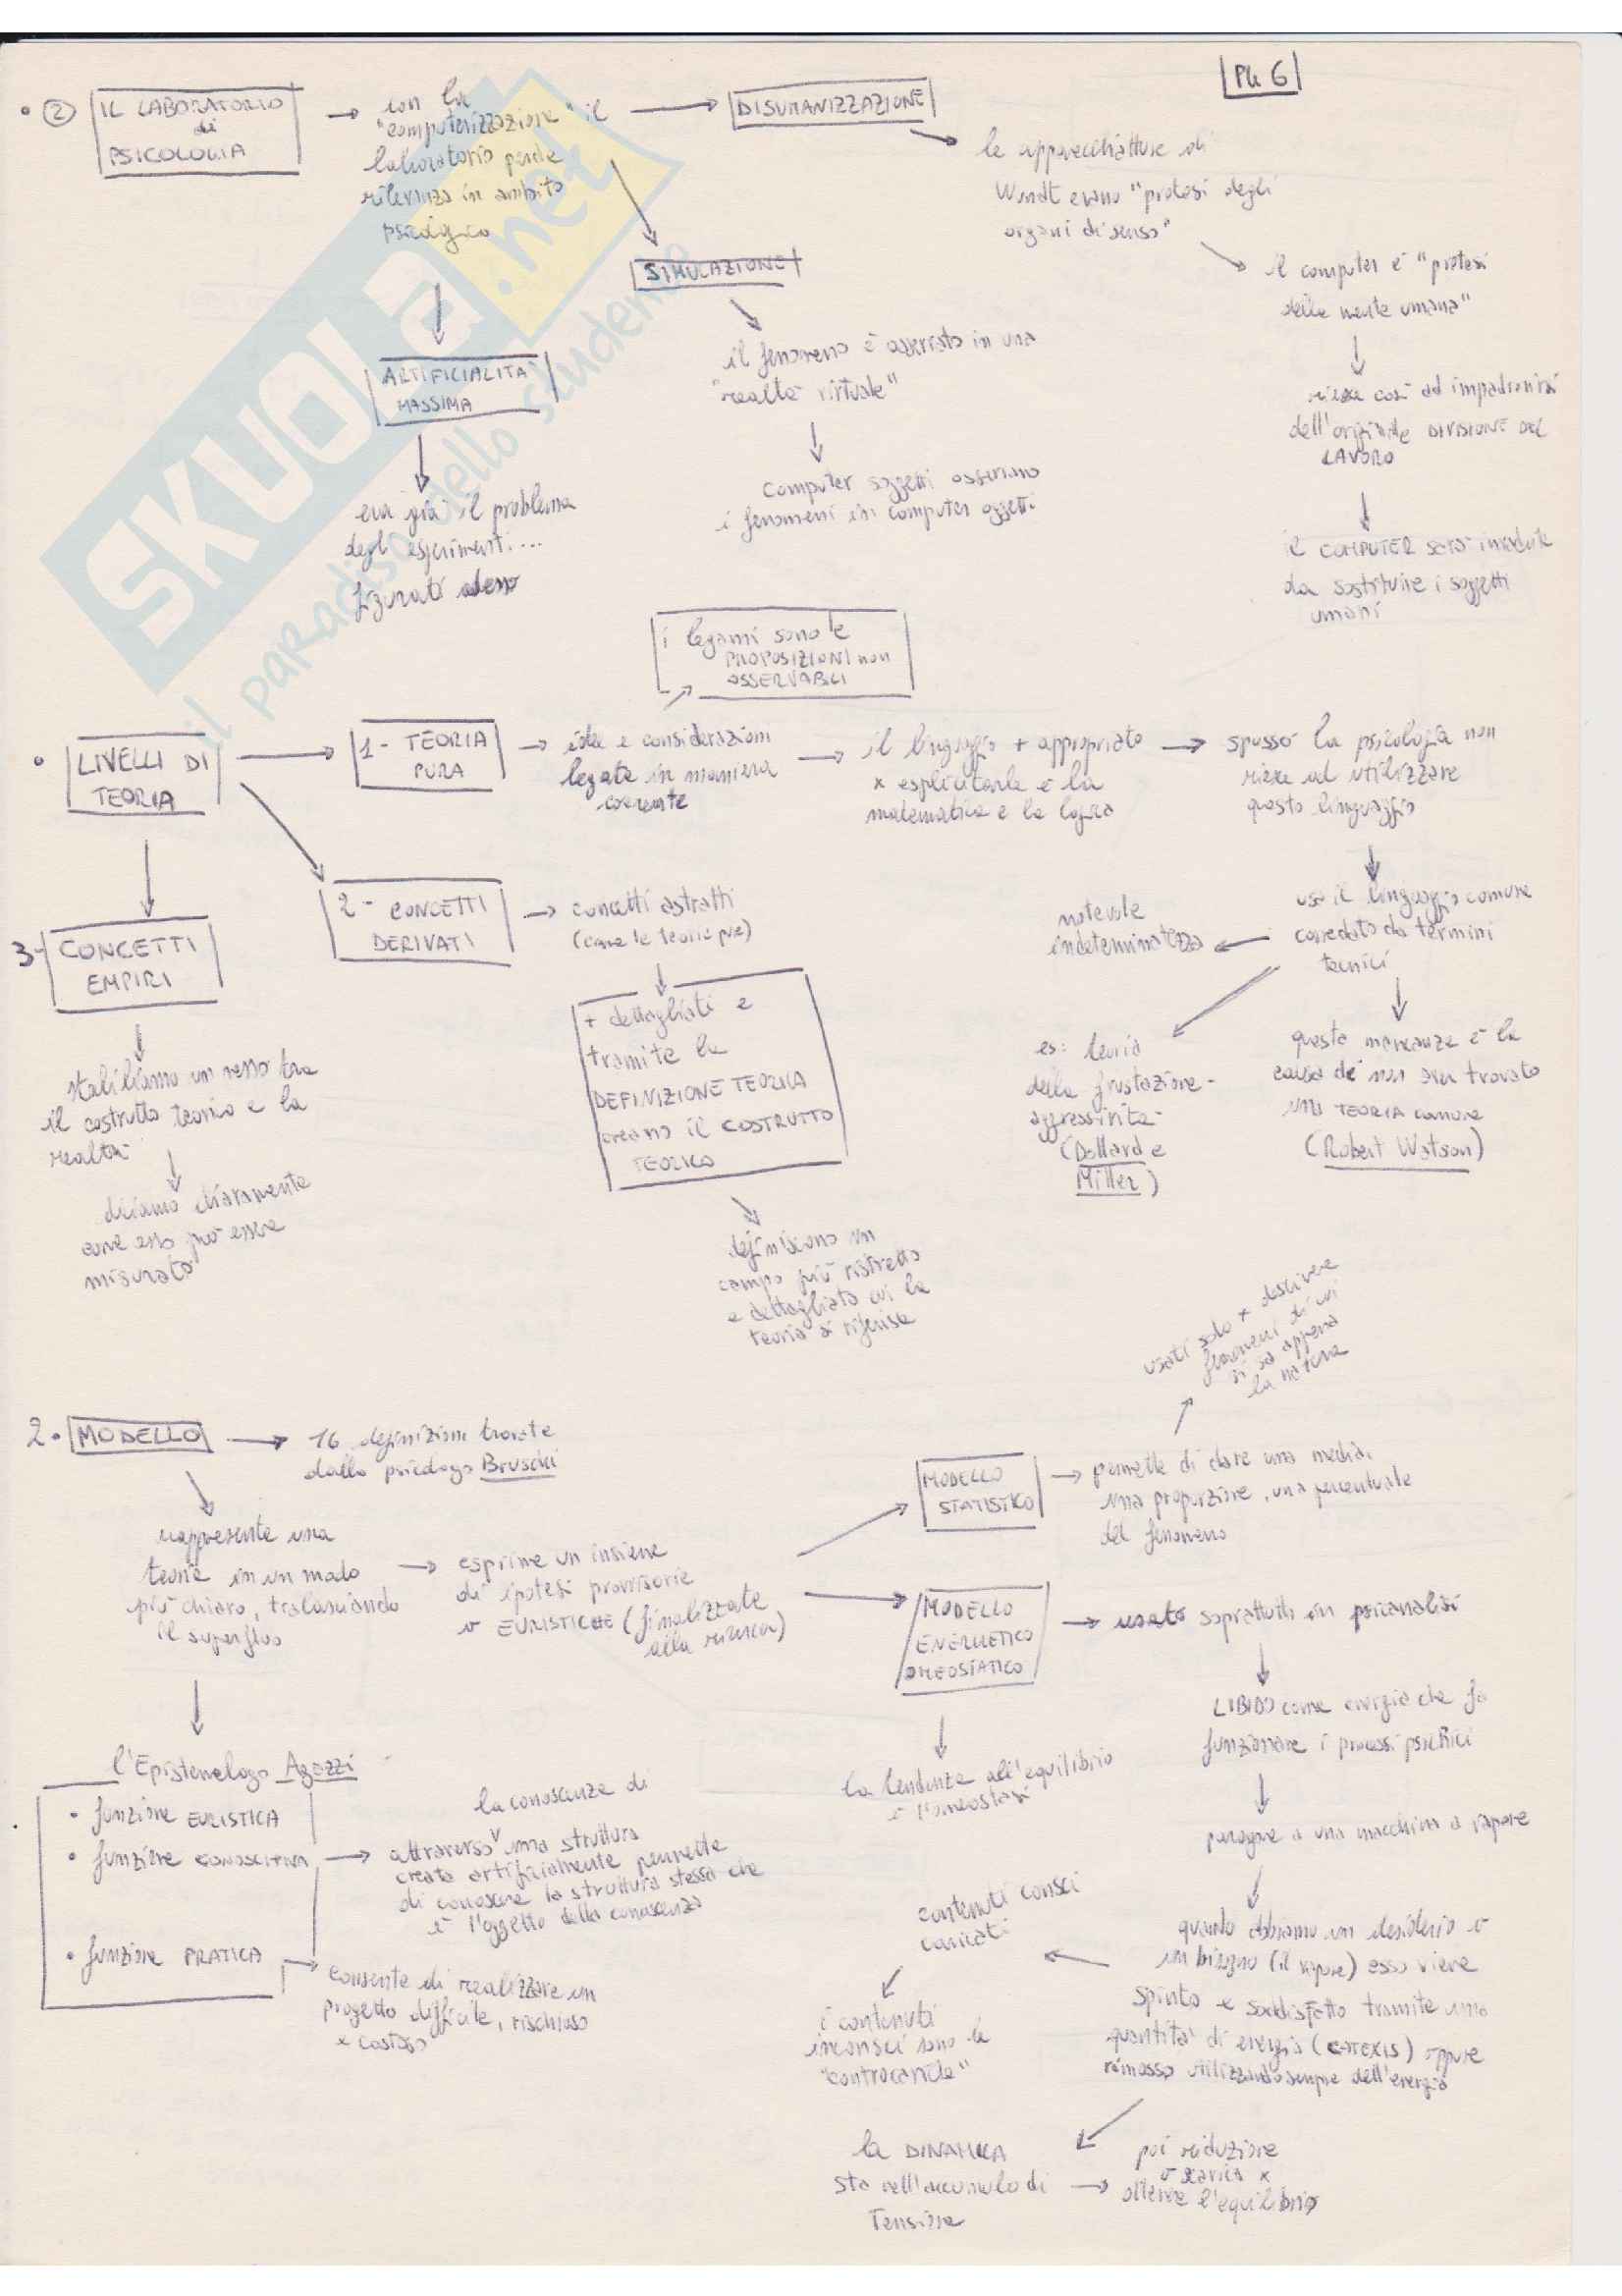 PG 6
• ② IL LABORATORIO
di
PSICOLOGIA
con la
"computerizzazione" il
laboratorio perde
rilevanza in ambito
psicologico
DISUMANIZZAZIONE
le apparecchiature di
Wundt erano "protesi degli
organi di senso"
il computer è "protesi
della mente umana"
riesce così ad impadronirsi
dell'originale DIVISIONE DEL
LAVORO
il COMPUTER sarà
da sostituire i soggetti
umani
SIMULAZIONE
il fenomeno è osservato in una
"realtà virtuale"
computer soggetti osservano
i fenomeni in computer oggetti
ARTIFICIALITA'
MASSIMA
era già il problema
degli esperimenti....
figurati adesso
SKUOLA.net
il paradiso dello studente
i legami sono le
PROPOSIZIONI non
OSSERVABILI
• LIVELLI DI
TEORIA
1 - TEORIA
PURA
idee e considerazioni
legate in maniera
coerente
il linguaggio + appropriato
x esplicitarle è la
matematica e la logica
spesso la psicologia non
riesce ad utilizzare
questo linguaggio
usa il linguaggio comune
corredato da termini
tecnici
notevole
indeterminatezza
es: teoria
della frustazione-
aggressività
(Dollard e
Miller)
questa mancanza è la
causa di non aver trovato
una TEORIA comune
(Robert Watson)
2 - CONCETTI
DERIVATI
concetti astratti
(come le teorie pure)
+ dettagliati e
tramite la
DEFINIZIONE TEORICA
creano il COSTRUTTO
TEORICO
definiscono un
campo più ristretto
e dettagliato cui la
teoria si riferisce
3- CONCETTI
EMPIRI
stabiliamo un nesso tra
il costrutto teorico e la
realtà
diciamo chiaramente
come esso può essere
misurato
2. MODELLO
16 definizioni trovate
dallo psicologo Bruschi
rappresenta una
teoria in un modo
più chiaro, tralasciando
il superfluo
esprime un insieme
di ipotesi provvisorie
o EURISTICHE (finalizzate
alla ricerca)
MODELLO
STATISTICO
permette di dare una media,
una proporzione, una percentuale
del fenomeno
usati solo x descrivere
fenomeni di cui
si sa appena
la natura
MODELLO
ENERGETICO
OMEOSTATICO
usato soprattutto in psicanalisi
LIBIDO come energia che fa
funzionare i processi psichici
paragone a una macchina a vapore
quando abbiamo un desiderio o
un bisogno (il vapore) esso viene
spinto e soddisfatto tramite una
quantità di energia (CATEXIS) oppure
rimosso utilizzando sempre dell'energia
la tendenza all'equilibrio
è l'omeostasi
contenuti consci
caricati
i contenuti
inconsci sono le
"controcariche"
la DINAMICA
sta nell'accumulo di
Tensione
poi riduzione
o scarica x
ottenere l'equilibrio
l'Epistemologo Agazzi
• funzione EURISTICA
• funzione CONOSCITIVA
• funzione PRATICA
la conoscenza di
attraverso una struttura
creata artificialmente permette
di conoscere la struttura stessa che
è l'oggetto della conoscenza
consente di realizzare un
progetto difficile, rischioso
e costoso